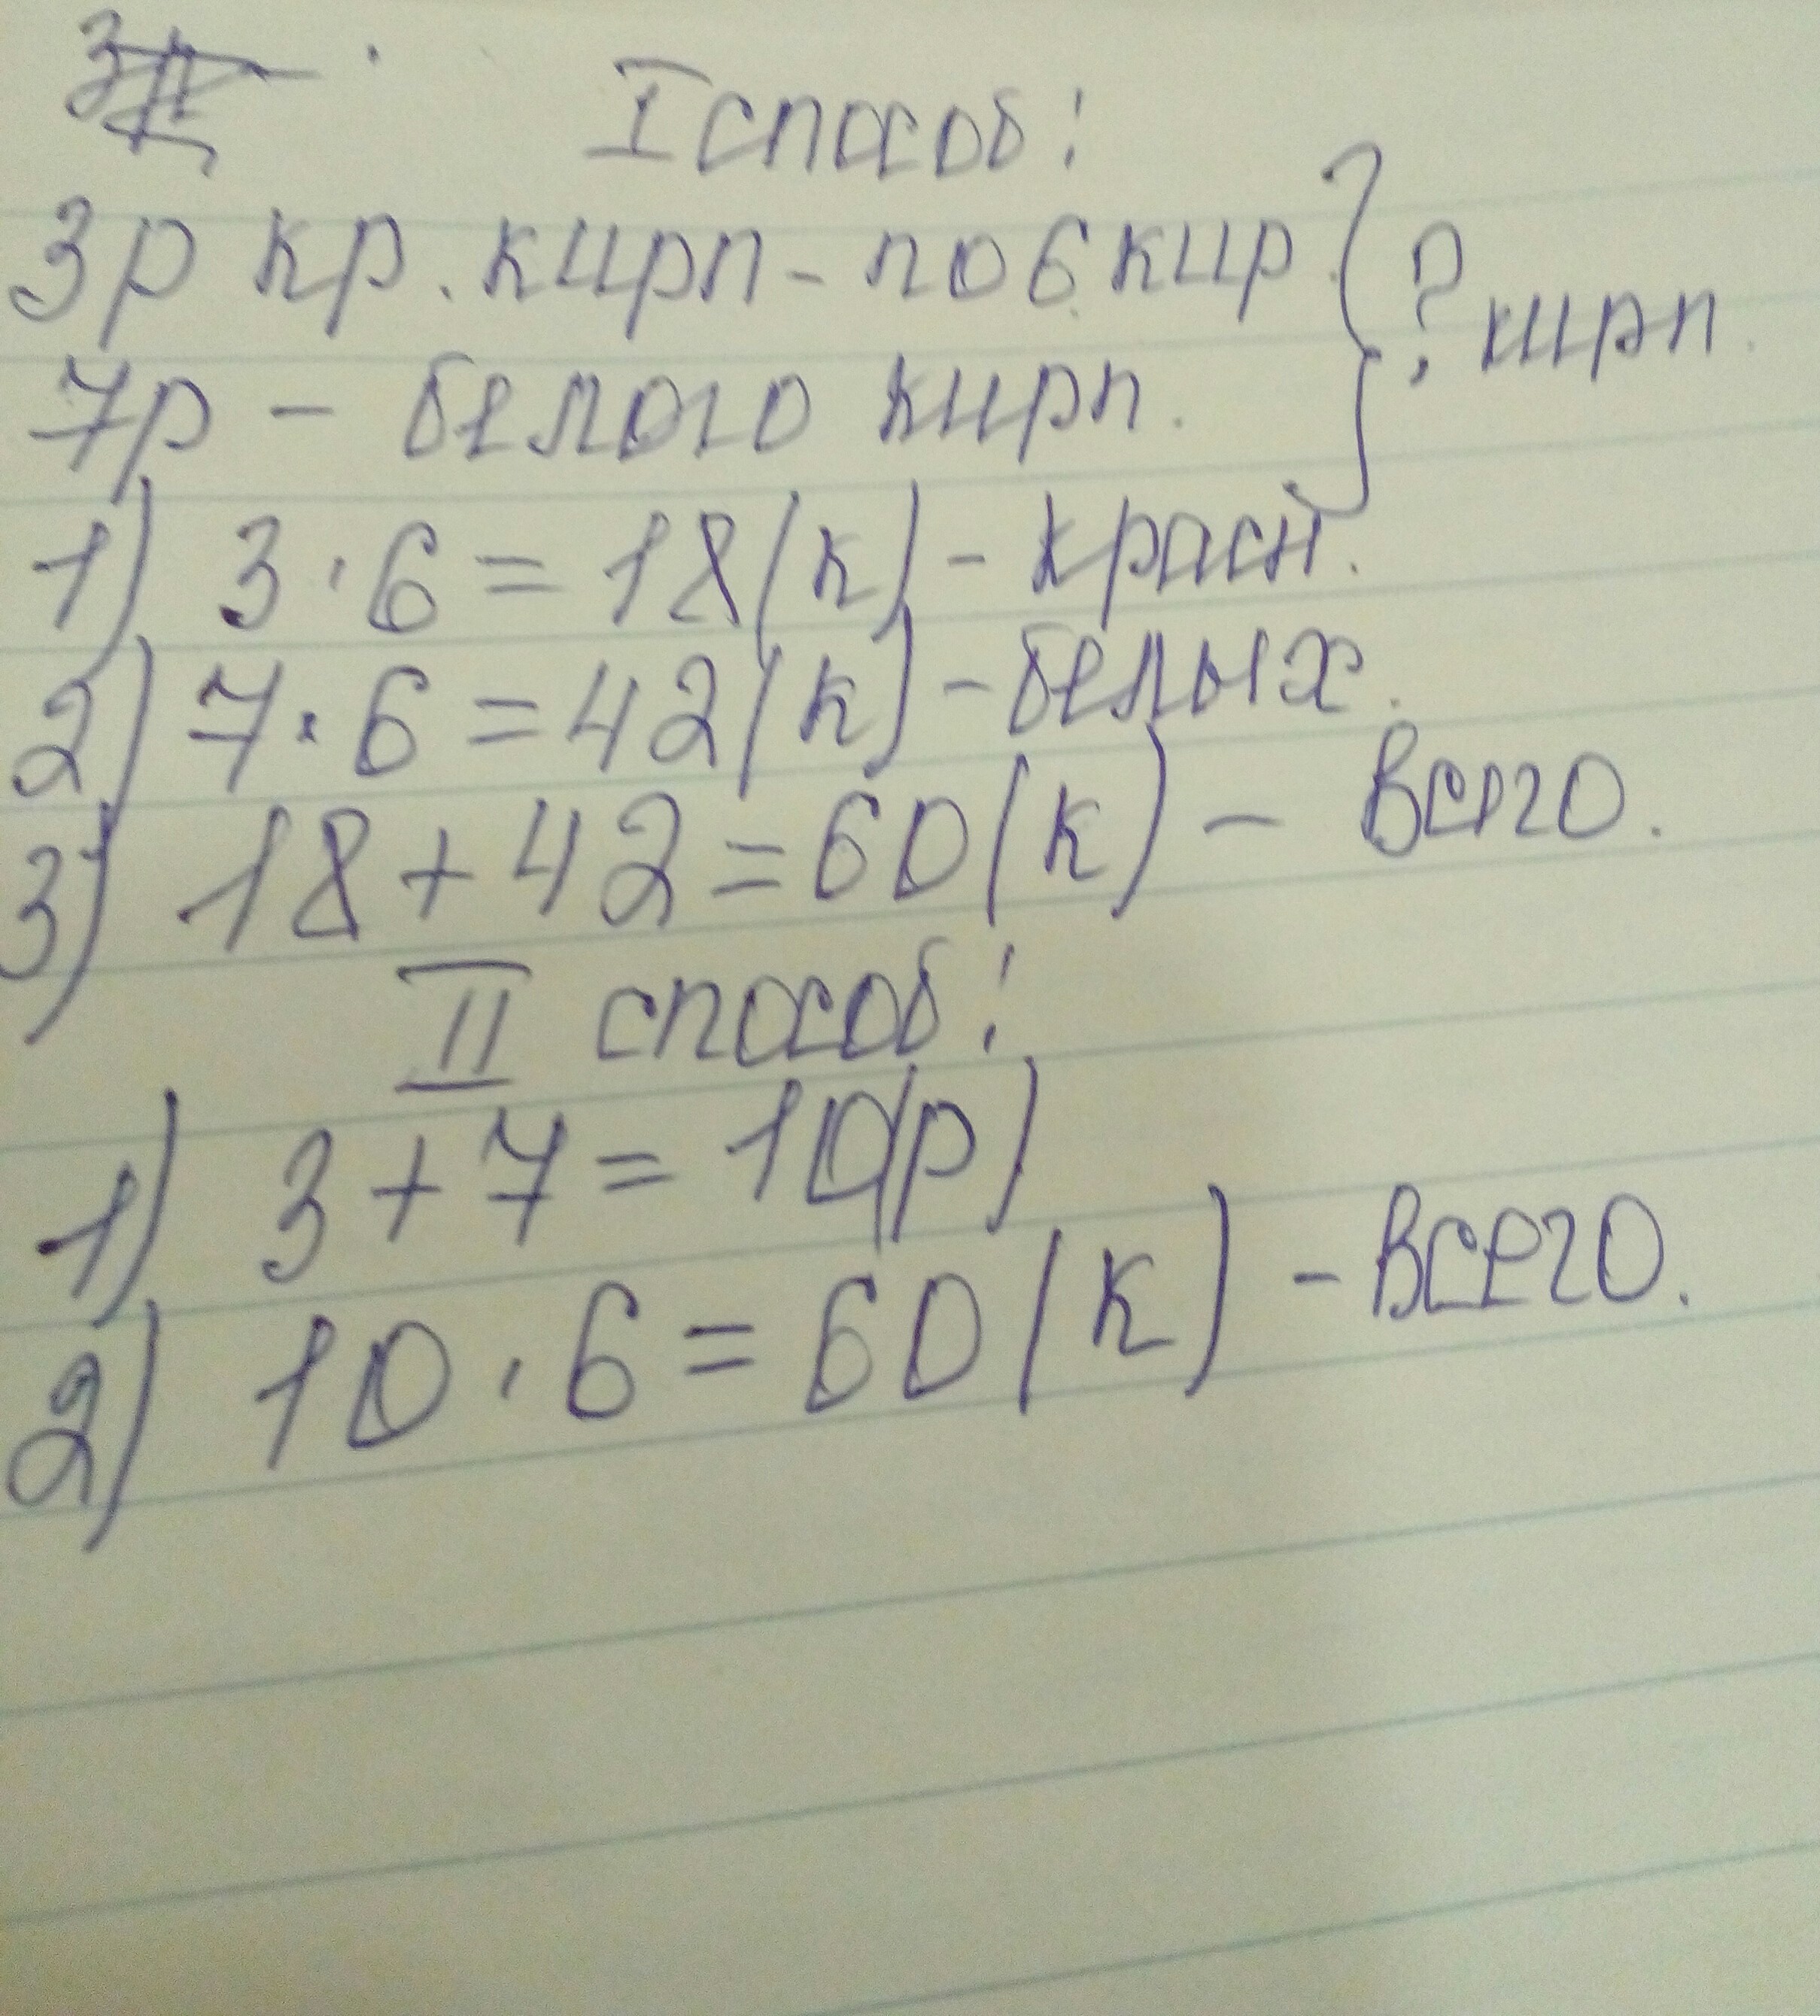 I способ:
3р кр. кирп - по 6 кир.
7р - белого кирп.
? кирп.
1) 3·6=18(к) - красн.
2) 7·6=42(к) - белых.
3) 18+42=60(к) - всего.
II способ:
1) 3+7=10(р)
2) 10·6=60(к) - всего.